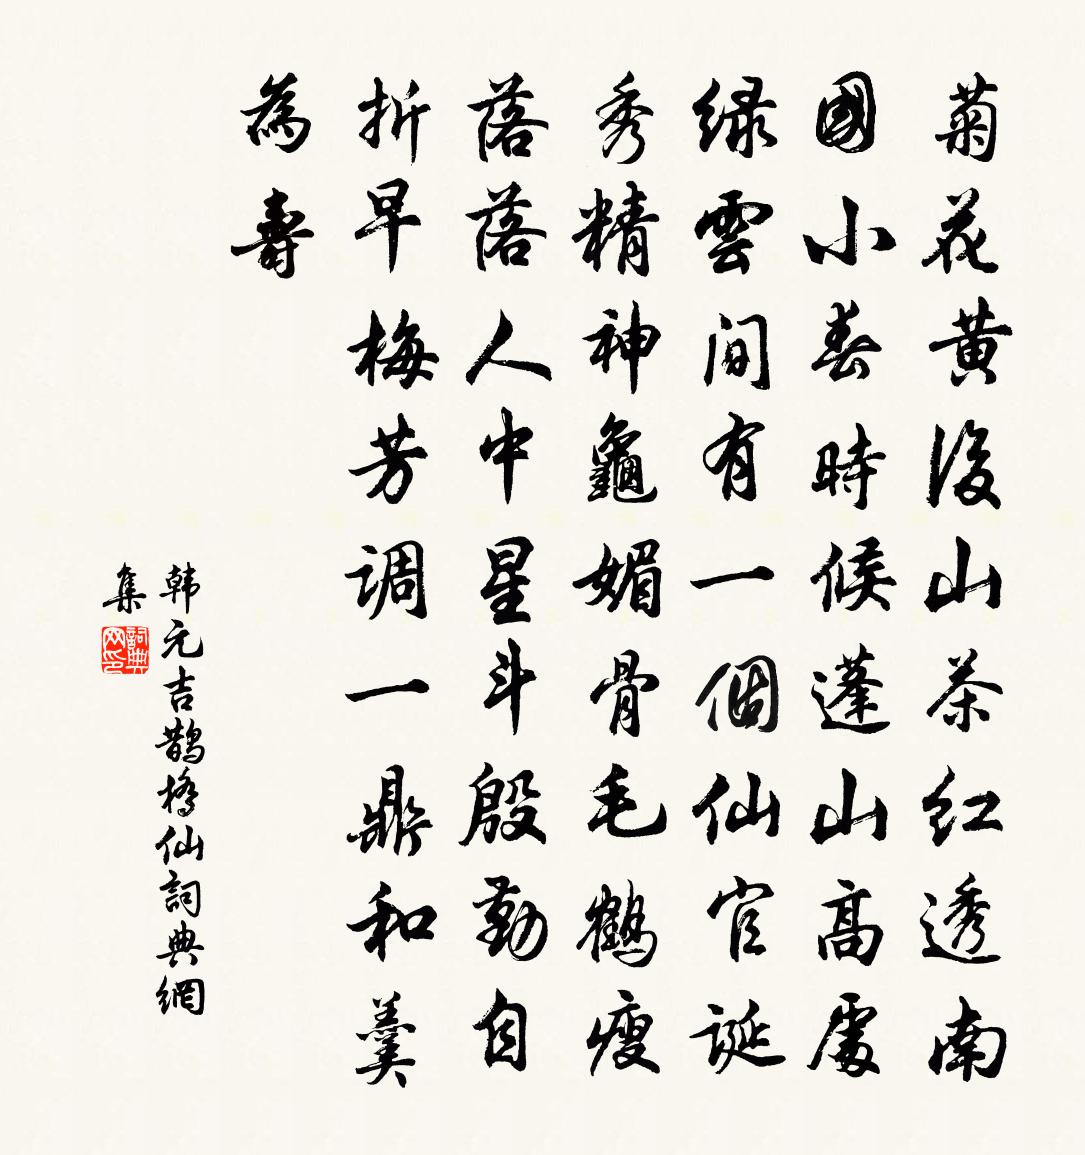 菊花黄後山茶红透南
國小春時候蓬山高處
緑雲间有一個仙官誕
秀精神龜媚骨毛鶴瘦
落落人中星斗殷勤自
折早梅芳调一鼎和羹
為壽
韩元吉鹊橋仙詞典網
集
詞典網印